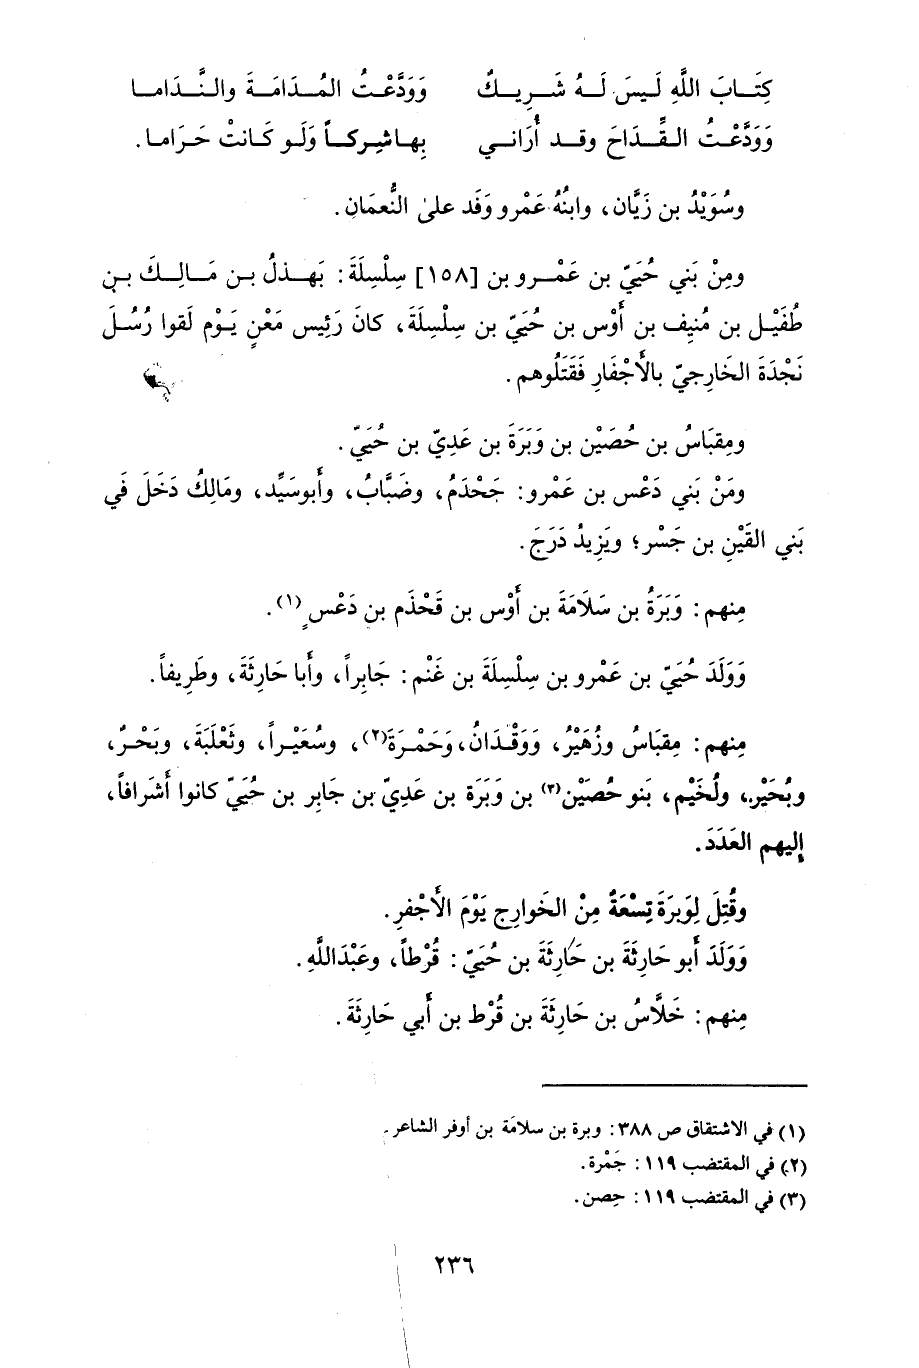 كِتَـابَ اللَّهِ لَيسَ لَـهُ شَـرِيـكٌ وَوَدَّعْـتُ المُـدَامَـةَ والنَّـدَامـا
وَوَدَّعْـتُ القِّـدَاحَ وقـد أُرَانـي بِهـا شِـركـاً وَلَـو كَـانتْ حَـرَامـا.
وسُوَيْدُ بن زَيَّان، وابنُهُ عَمْرو وَفَد على النُّعمَانِ.
ومِنْ بَني حُيَيّ بن عَمْـرو بن [١٥٨] سِلْسِلَةَ: بَهـدلُ بـن مَـالِـكَ بـن
طُفَيْـل بن مُنيِف بن أَوْس بن حُيَيّ بن سِلْسِلَةَ، كانَ رَئِيس مَعْنٍ يَـوْم لَقوا رُسُـلَ
نَجْدَةَ الخَارِجيّ بالأَجْفَارِ فَقَتَلُوهم.
ومِقبَاسُ بن حُصَيْن بن وَبَرَةَ بن عَدِيّ بن حُيَيّ.
ومَنْ بَني دَعْس بن عَمْرو: جَحْدَمُ، وضَبَّابُ، وأَبوسَيِّد، ومَالِكُ دَخَلَ في
بَني القَيْنِ بن جَسْر؛ ويَزِيدُ دَرَجَ.
مِنهم: وَبَرَةُ بن سَلَامَةَ بن أَوْس بن قَحْذَم بن دَعْسٍ (١).
وَوَلَدَ حُيَيّ بن عَمْرو بن سِلْسِلَةَ بن غَنْم: جَابِراً، وأَبا حَارِثَةَ، وطَرِيفاً.
مِنهم: مِقبَاسُ وزُهَيْرُ، وَوَقْـدَانُ، وَحَمْـرَةَ(٢)، وسُعَيْـراً، وثَعْلَبَةَ، وبَحْـرُ،
وبُحَيْر، ولُخَيْم، بَنو حُصَيْن(٣) بن وَبَرَة بن عَدِيّ بن جَابِر بن حُيَيّ كانوا أَشَرافاً،
إليهم العَدَدَ.
وقُتِلَ لِوَبرَةَ تِسْعَةٌ مِنْ الخَوارِج يَوْمَ الأَجْفرِ.
وَوَلَدَ أَبو حَارِثَةَ بن حَارِثَةَ بن حُيَيّ: قُرْطاً، وعَبْدَاللَّهِ.
مِنهم: خَلَّاسُ بن حَارِثَةَ بن قُرْط بن أَبي حَارِثَةَ.
(١) في الاشتقاق ص ٣٨٨: وبرة بن سلامَة بن أوفر الشاعر.
(٢) في المقتضب ١١٩: جَمْرة.
(٣) في المقتضب ١١٩: حِصن.
٢٣٦